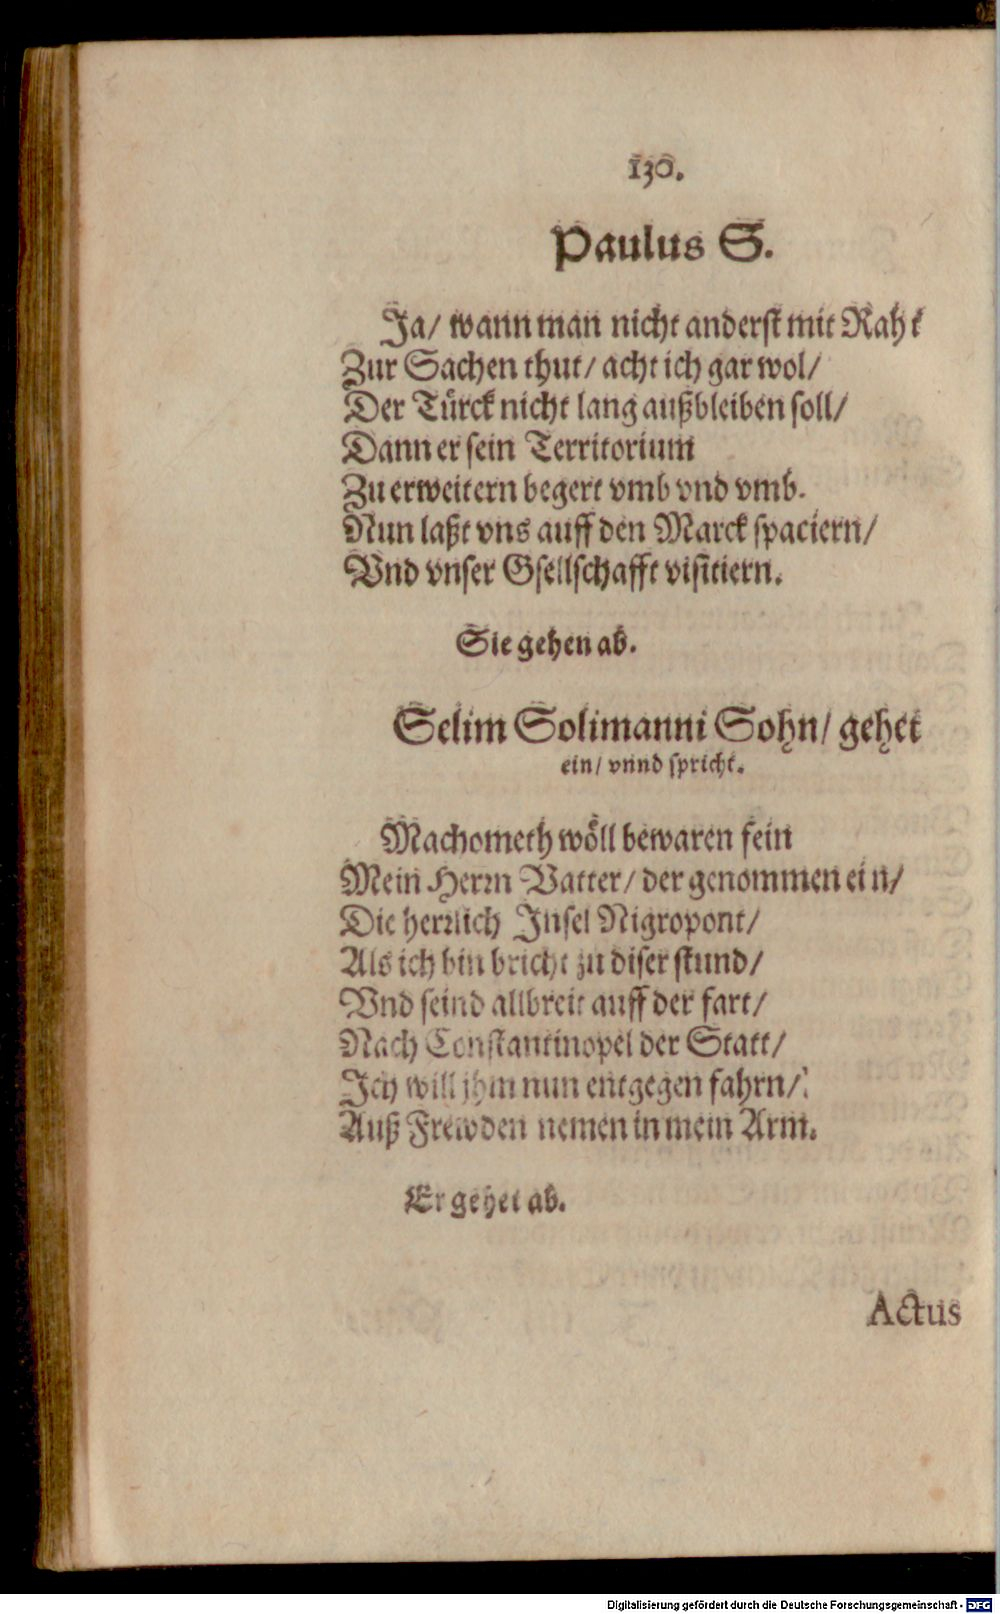 130.
Paulus S.
Ja/ wann man nicht anderst mit Raht
Zur Sachen thut/ acht ich gar wol/
Der Türck nicht lang außbleiben soll/
Dann er sein Territorium
Zu erweitern begert vmb vnd vmb.
Nun laßt vns auff den Marck spaciern/
Vnd vnser Gsellschafft visitiern.
Sie gehen ab.
Selim Solimanni Sohn/ gehet
ein/ vnnd spricht.
Machometh wöll bewaren fein
Mein Herrn Vatter/ der genommen ein/
Die herrlich Insel Nigropont/
Als ich bin bricht zu diser stund/
Vnd seind allbreit auff der fart/
Nach Constantinopel der Statt/
Ich will jhm nun entgegen fahrn/
Auß Frewden nemen in mein Arm.
Er gehet ab.
Actus
Digitalisierung gefördert durch die Deutsche Forschungsgemeinschaft - DFG